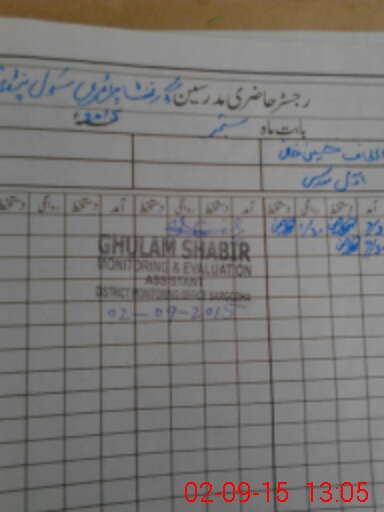 رجسٹر حاضری مدرسین گورنمنٹ پرائمری سکول
بابت ماہ ستمبر 2015ء
الطاف حسین
اول مدرس
آمد دستخط روانگی دستخط آمد دستخط روانگی دستخط آمد دستخط روانگی دستخط
7/30 1/30
7/30
GHULAM SHABIR
MONITORING & EVALUATION
ASSISTANT
DISTRICT MONITORING OFFICE SARGODHA
02-09-2015
02-09-15 13:05